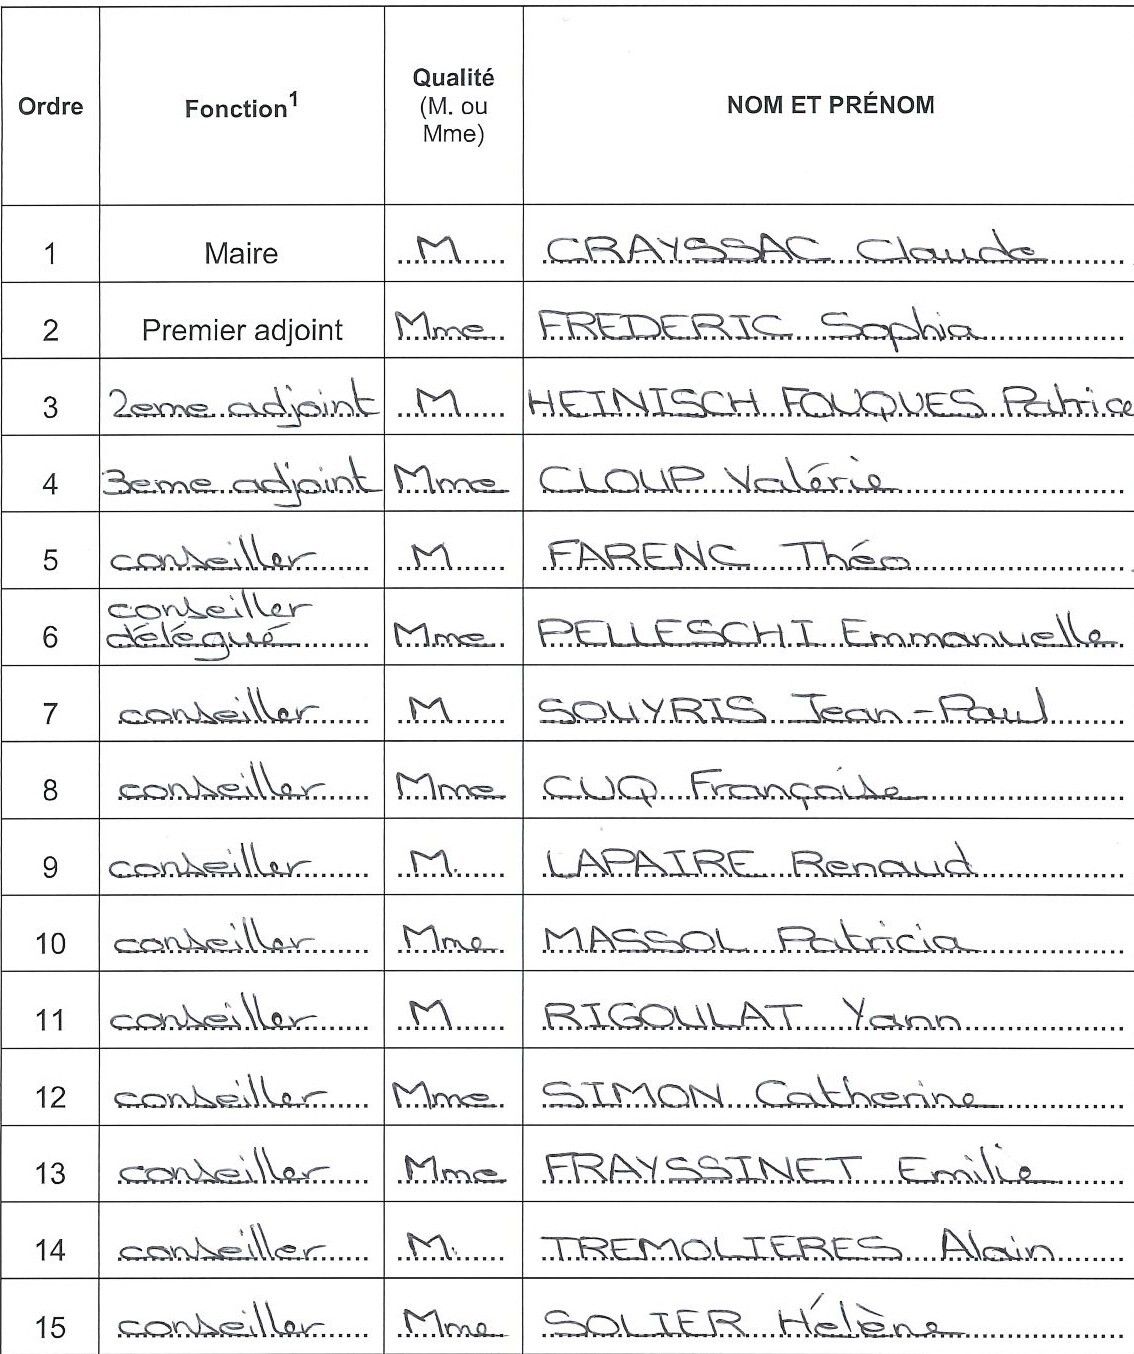 Ordre Fonction1 Qualité (M. ou Mme) NOM ET PRÉNOM
1 Maire M CRAYSSAC Claude
2 Premier adjoint Mme FREDERIC Sophia
3 2eme adjoint M HEINISCH FOUQUES Patrice
4 3eme adjoint Mme CLOUP Valérie
5 conseiller M FARENC Théo
6 conseiller délégué Mme PELLESCHI Emmanuelle
7 conseiller M SOUYRIS Jean-Paul
8 conseiller Mme CUQ Françoise
9 conseiller M. LAPAIRE Renaud
10 conseiller Mme MASSOL Patricia
11 conseiller M RIGOULAT Yann
12 conseiller Mme SIMON Catherine
13 conseiller Mme FRAYSSINET Emilie
14 conseiller M. TREMOLIERES Alain
15 conseiller Mme SOLIER Hélène